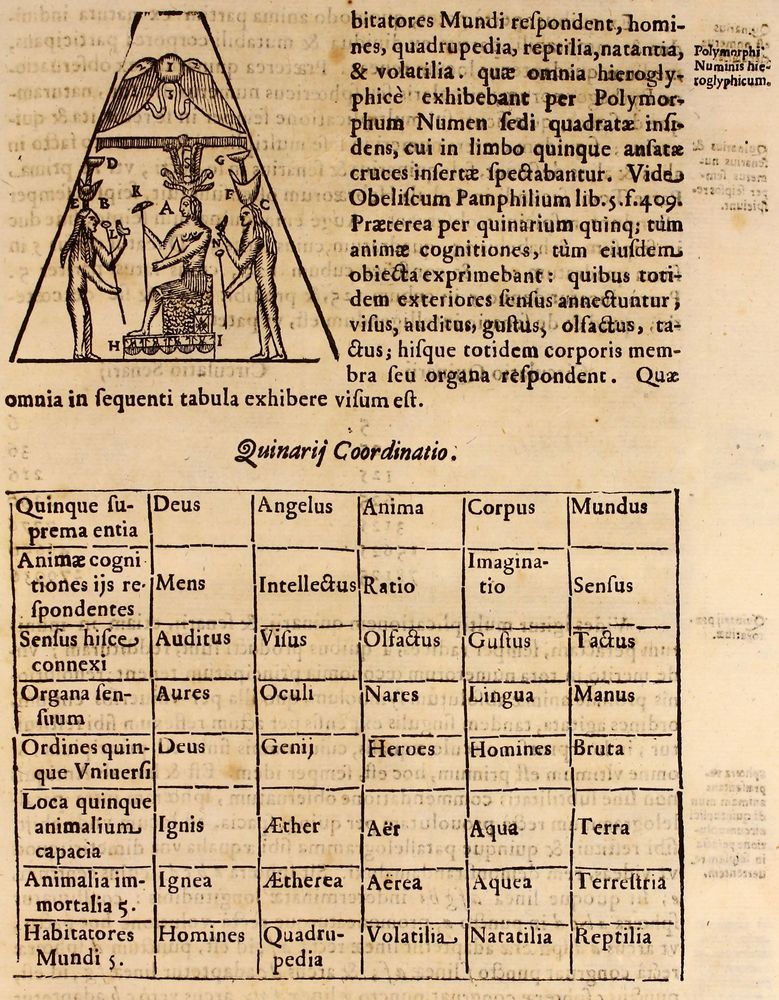 bitatores Mundi reſpondent, homi-
nes, quadrupedia, reptilia, natantia,
& volatilia. quæ omnia hierogly-
phicè exhibebant per Polymor-
phum Numen ſedi quadratæ inſi-
dens, cui in limbo quinque anſatæ
cruces inſertæ ſpectabantur. Vide
Obeliſcum Pamphilium lib. 5. f. 409.
Præterea per quinarium quinq; tùm
animæ cognitiones, tùm eiuſdem
obiecta exprimebant: quibus toti-
dem exteriores ſenſus annectuntur;
viſus, auditus, guſtus, olfactus, ta-
ctus; hiſque totidem corporis mem-
bra ſeu organa reſpondent. Quæ
omnia in ſequenti tabula exhibere viſum eſt.
Polymorphi
Numinis hie-
roglyphicum.
1
2
3
D
G
E
B
K
A
F
C
N
H
I
Quinarij Coordinatio.
Quinque ſu-
prema entia
Deus
Angelus
Anima
Corpus
Mundus
Animæ cogni
tiones ijs re-
ſpondentes
Mens
Intellectus
Ratio
Imagina-
tio
Senſus
Senſus hiſce
connexi
Auditus
Viſus
Olfactus
Guſtus
Tactus
Organa ſen-
ſuum
Aures
Oculi
Nares
Lingua
Manus
Ordines quin-
que Vniuerſi
Deus
Genij
Heroes
Homines
Bruta
Loca quinque
animalium
capacia
Ignis
Æther
Aër
Aqua
Terra
Animalia im-
mortalia 5.
Ignea
Ætherea
Aërea
Aquea
Terreſtria
Habitatores
Mundi 5.
Homines
Quadru-
pedia
Volatilia
Natatilia
Reptilia